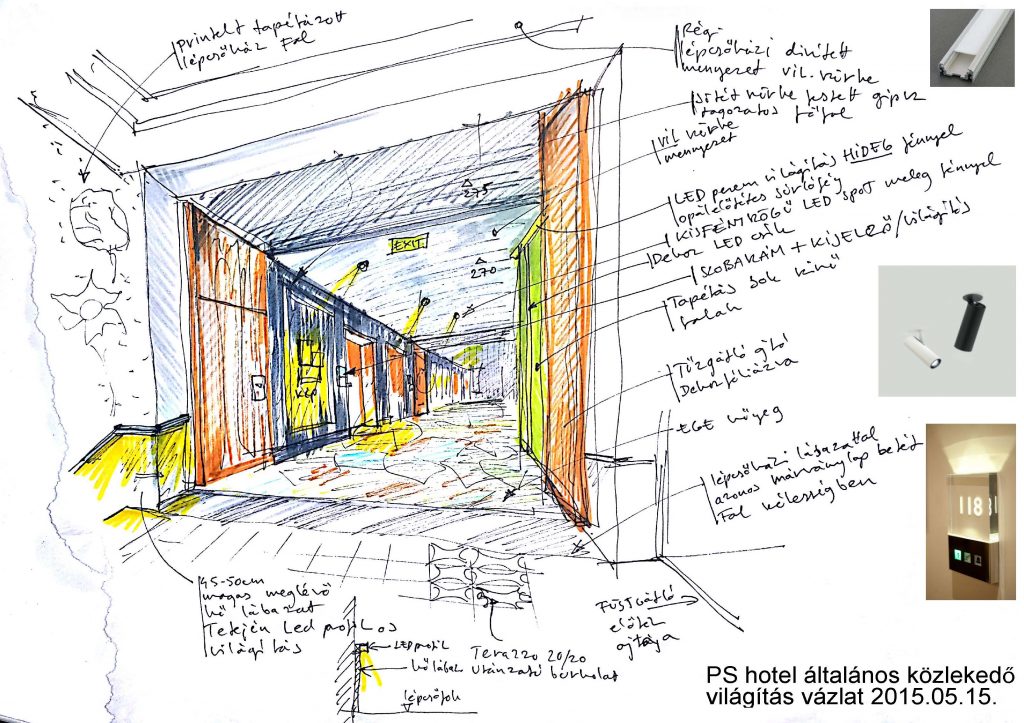 Printelt tapétázott
lépcsőház Fal
Régi
lépcsőházi díszített
mennyezet vil. szürke
sötét szürke festett gipsz
tagozatos főfal
vil szürke
mennyezet
LED perem világítás HIDEG fénnyel
KISFÉNYKÖGŰ LED spot meleg fénnyel
Dekor LED csík
SZOBASZÁM + KIJELZŐ/világítás
Tapétás sok színű
falak
Tűzgátló ajtó
Dekorfóliázva
EGE szőnyeg
lépcsőházi lábazattal
azonos márványlap betét
Fal szélességben
275
EXIT
270
KÉP
45-50cm
magas meglévő
kő lábazat
Tetején Led profilos
világítás
LED profil
kő lábazat
lépcsőfok
Terazzo 20/20
utánzatú burkolat
FÜSTGÁTLÓ
előtér
ajtaja
118
PS hotel általános közlekedő
világítás vázlat 2015.05.15.